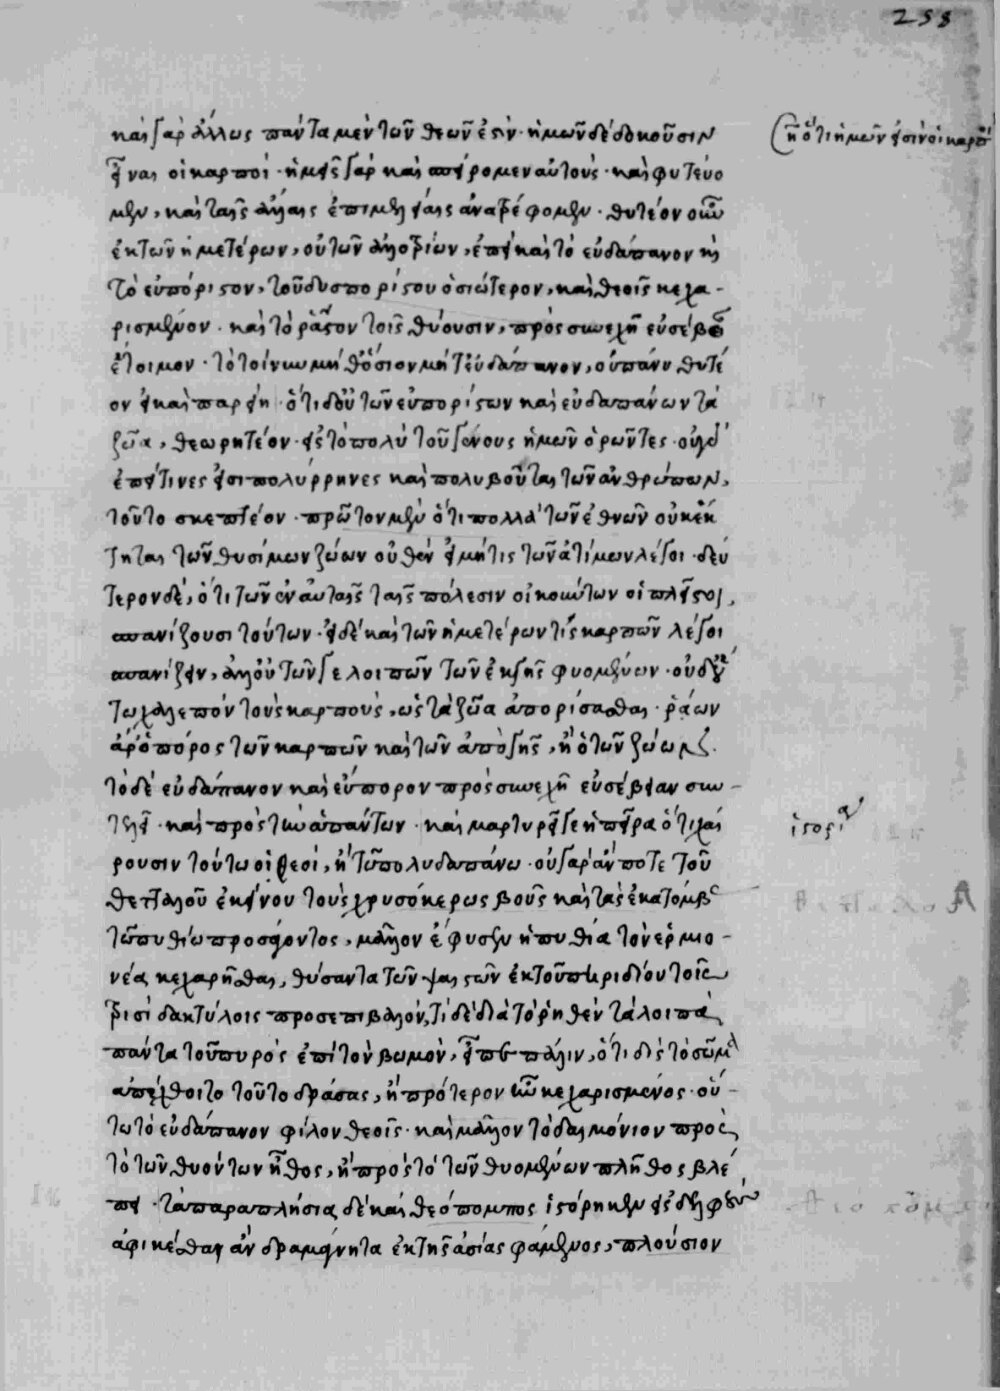 258
καὶ γὰρ ἄλλως πάντα μὲν τῶν θεῶν ἐστίν· ἡμῶν δὲ δοκοῦσιν
εἶναι οἱ καρποί· ἡμεῖς γὰρ καὶ σπείρομεν αὐτούς· καὶ φυτεύο
μεν, καὶ ταῖς ἄλλαις ἐπιμελείαις ἀνατρέφομεν· θυτέον οὖν
ἐκ τῶν ἡμετέρων, οὐ τῶν ἀλλοτρίων, ἐπεὶ καὶ τὸ εὐδάπανον καὶ
τὸ εὐπόριστον, τοῦ δυσπορίστου ὁσιώτερον, καὶ θεοῖς κεχα-
ρισμένον· καὶ τὸ ῥᾷστον τοῖς θύουσιν, πρὸς συνεχῆ εὐσέβειαν
ἕτοιμον· τὸ τοίνυν μήθ' ὅσιον μήτ' εὐδάπανον, οὐ πάνυ θυτέ
ον εἰ καὶ παρείη· ὅτι δ' οὐ τῶν εὐπορίστων καὶ εὐδαπάνων τὰ
ζῶα, θεωρητέον· εἰς τὸ πολὺ τοῦ γένους ἡμῶν ὁρῶντες· οὐ γὰρ
ἐπεί τινες εἰσι πολύρρηνες καὶ πολυβοῦται τῶν ἀνθρώπων,
τοῦτο σκεπτέον· πρῶτον μὲν ὅτι πολλὰ τῶν ἐθνῶν οὐ κέκ
τηται τῶν θυσίμων ζώων οὐθὲν εἰ μή τις τῶν ἀτίμων λέγοι· δεύ
τερον δὲ, ὅτι τῶν ἐν αὐταῖς ταῖς πόλεσιν οἰκούντων οἱ πλεῖστοι,
σπανίζουσι τούτων· εἰ δὲ καὶ τῶν ἡμετέρων τις καρπῶν λέγοι
σπανίζειν, ἀλλ' οὐ τῶν γε λοιπῶν τῶν ἐκ γῆς φυομένων· οὐδ' οὕ
τω χαλεπὸν τοὺς καρποὺς, ὡς τὰ ζῶα ἀπορίσασθαι· ῥᾴων
ἄρ' ὁ πόρος τῶν καρπῶν καὶ τῶν ἀπὸ γῆς, ἢ ὁ τῶν ζώων.
τὸ δὲ εὐδάπανον καὶ εὔπορον πρὸς συνεχῆ εὐσέβειαν συν-
τελεῖ· καὶ πρὸς τὴν ἁπάντων· καὶ μαρτυρεῖ γε ἡ πεῖρα ὅτι χαί
ρουσιν τούτω οἱ θεοί, ἢ τῶ πολυδαπάνω· οὐ γὰρ ἄν ποτε τοῦ
θετταλοῦ ἐκείνου τοὺς χρυσόκερως βοῦς καὶ τὰς ἑκατόμβας
τῶ πυθίω προσάγοντος, μᾶλλον ἔφυσεν ἡ πυθία τὸν ἑρμιο-
νέα κεχαρῆσθαι, θύσαντα τῶν ψαιστῶν ἐκ τοῦ πηριδίου τοῖς
τρισὶ δακτύλοις προσεπιβαλόντι δὲ διὰ τὸ ῥηθὲν τὰ λοιπὰ
πάντα τοῦ πυρὸς ἐπὶ τὸν βωμὸν, εἶπε πάλιν, ὅτι δὶς τόσωμα
ἀπέχθοιτο τοῦτο δράσας, ἢ πρότερον ἦν κεχαρισμένος· οὕ-
τω τὸ εὐδάπανον φίλον θεοῖς· καὶ μᾶλλον τὸ δαιμόνιον πρὸς
τὸ τῶν θυόντων ἦθος, ἢ πρὸς τὸ τῶν θυομένων πλῆθος βλέ
πει· τὰ παραπλήσια δὲ καὶ θεόπομπος ἱστόρηκεν εἰς δελφοὺς
ἀφικέσθαι ἄνδρα μάγνητα ἐκ τῆς ἀσίας φάμενος, πλούσιον
ὅτι ἡμῶν εἰσὶν οἱ καρποί
ἱστορία